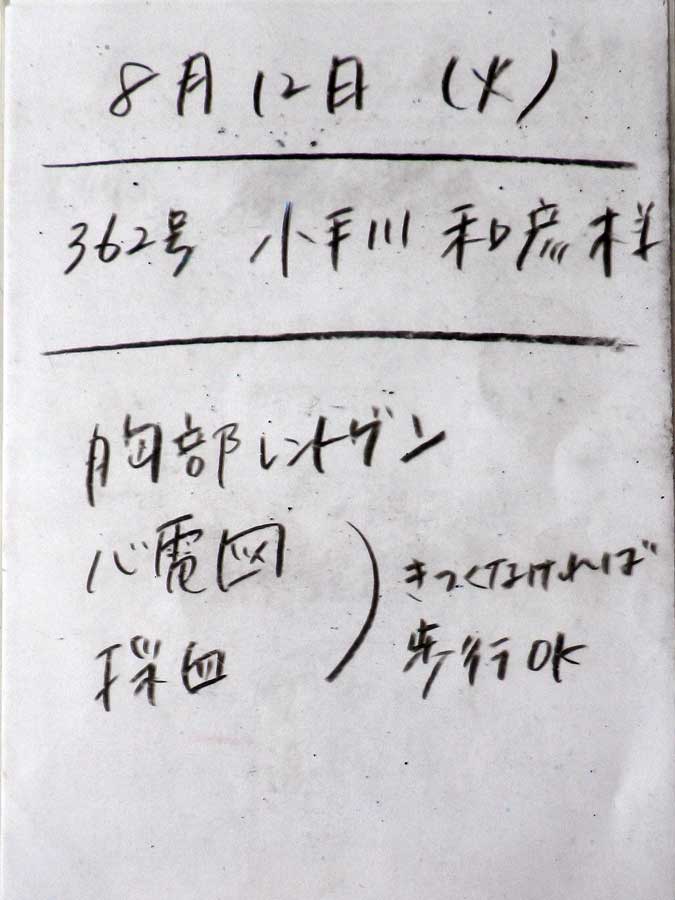 8月12日 (火)
362号 小手川 和彦様
胸部レントゲン
心電図
採血
きつくなければ
歩行OK